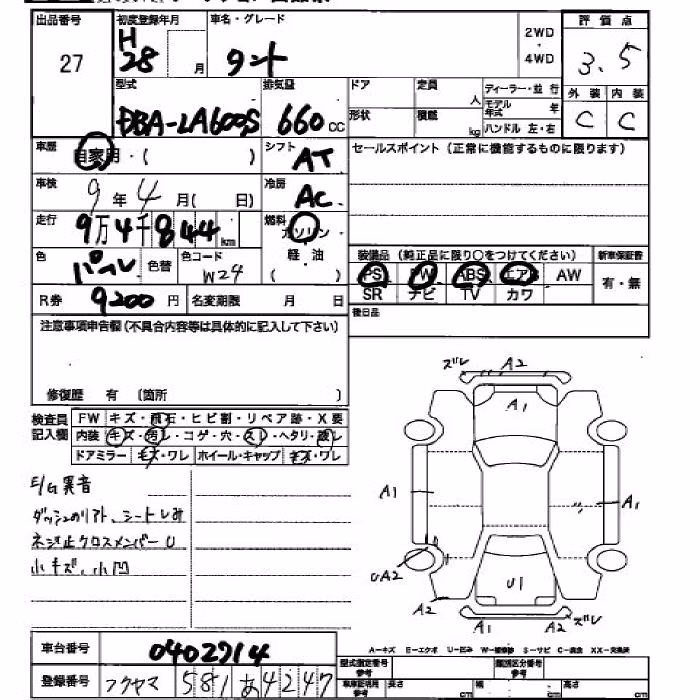 出品番号 初度登録年月 車名・グレード 2WD・4WD 評価点
27 H28 月 タント 3.5
外装 内装
C C
型式 排気量 ドア 定員 人 ディーラー・並 行
DBA-LA600S 660 CC 形状 積載 kg モデル年式 年
ハンドル 左・右
車歴 自家用・( ) シフト AT セールスポイント(正常に機能するものに限ります)
車検 9年4月( 日) 冷房 AC
走行 9万4千844km 燃料 ガソリン 軽・油
装備品(純正品に限り○をつけてください) 新車保証書
色 パール 色替 色コード W24
PS PW ABS エアB AW 有・無
SR ナビ TV カワ
R券 9200円 名変期限 月 日
後日品
注意事項申告欄(不具合内容等は具体的に記入して下さい)
修復歴 有 (箇所 )
検査員記入欄 FW キズ・飛石・ヒビ割・リペア跡・X要
内装 キズ・汚レ・コゲ・穴・スレ・ヘタリ・破レ
ドアミラー キズ・ワレ ホイール・キャップ キズ・ワレ
E/G異音
ダッシュのリアト、シートしみ
ネジ止クロスメンバーU
小キズ、小凹
ズレ A2
A1
A1 A1
UA2 U1
A2 A1 A2 ズレ
A-キズ E-エクボ U-凹み W-補修跡 S-サビ C-腐食 XX-交換済
車台番号 0402914
登録番号 フクヤマ 581 あ 4247
型式指定番号 参考 類別区分番号 参考
長さ cm 幅 cm 高さ cm